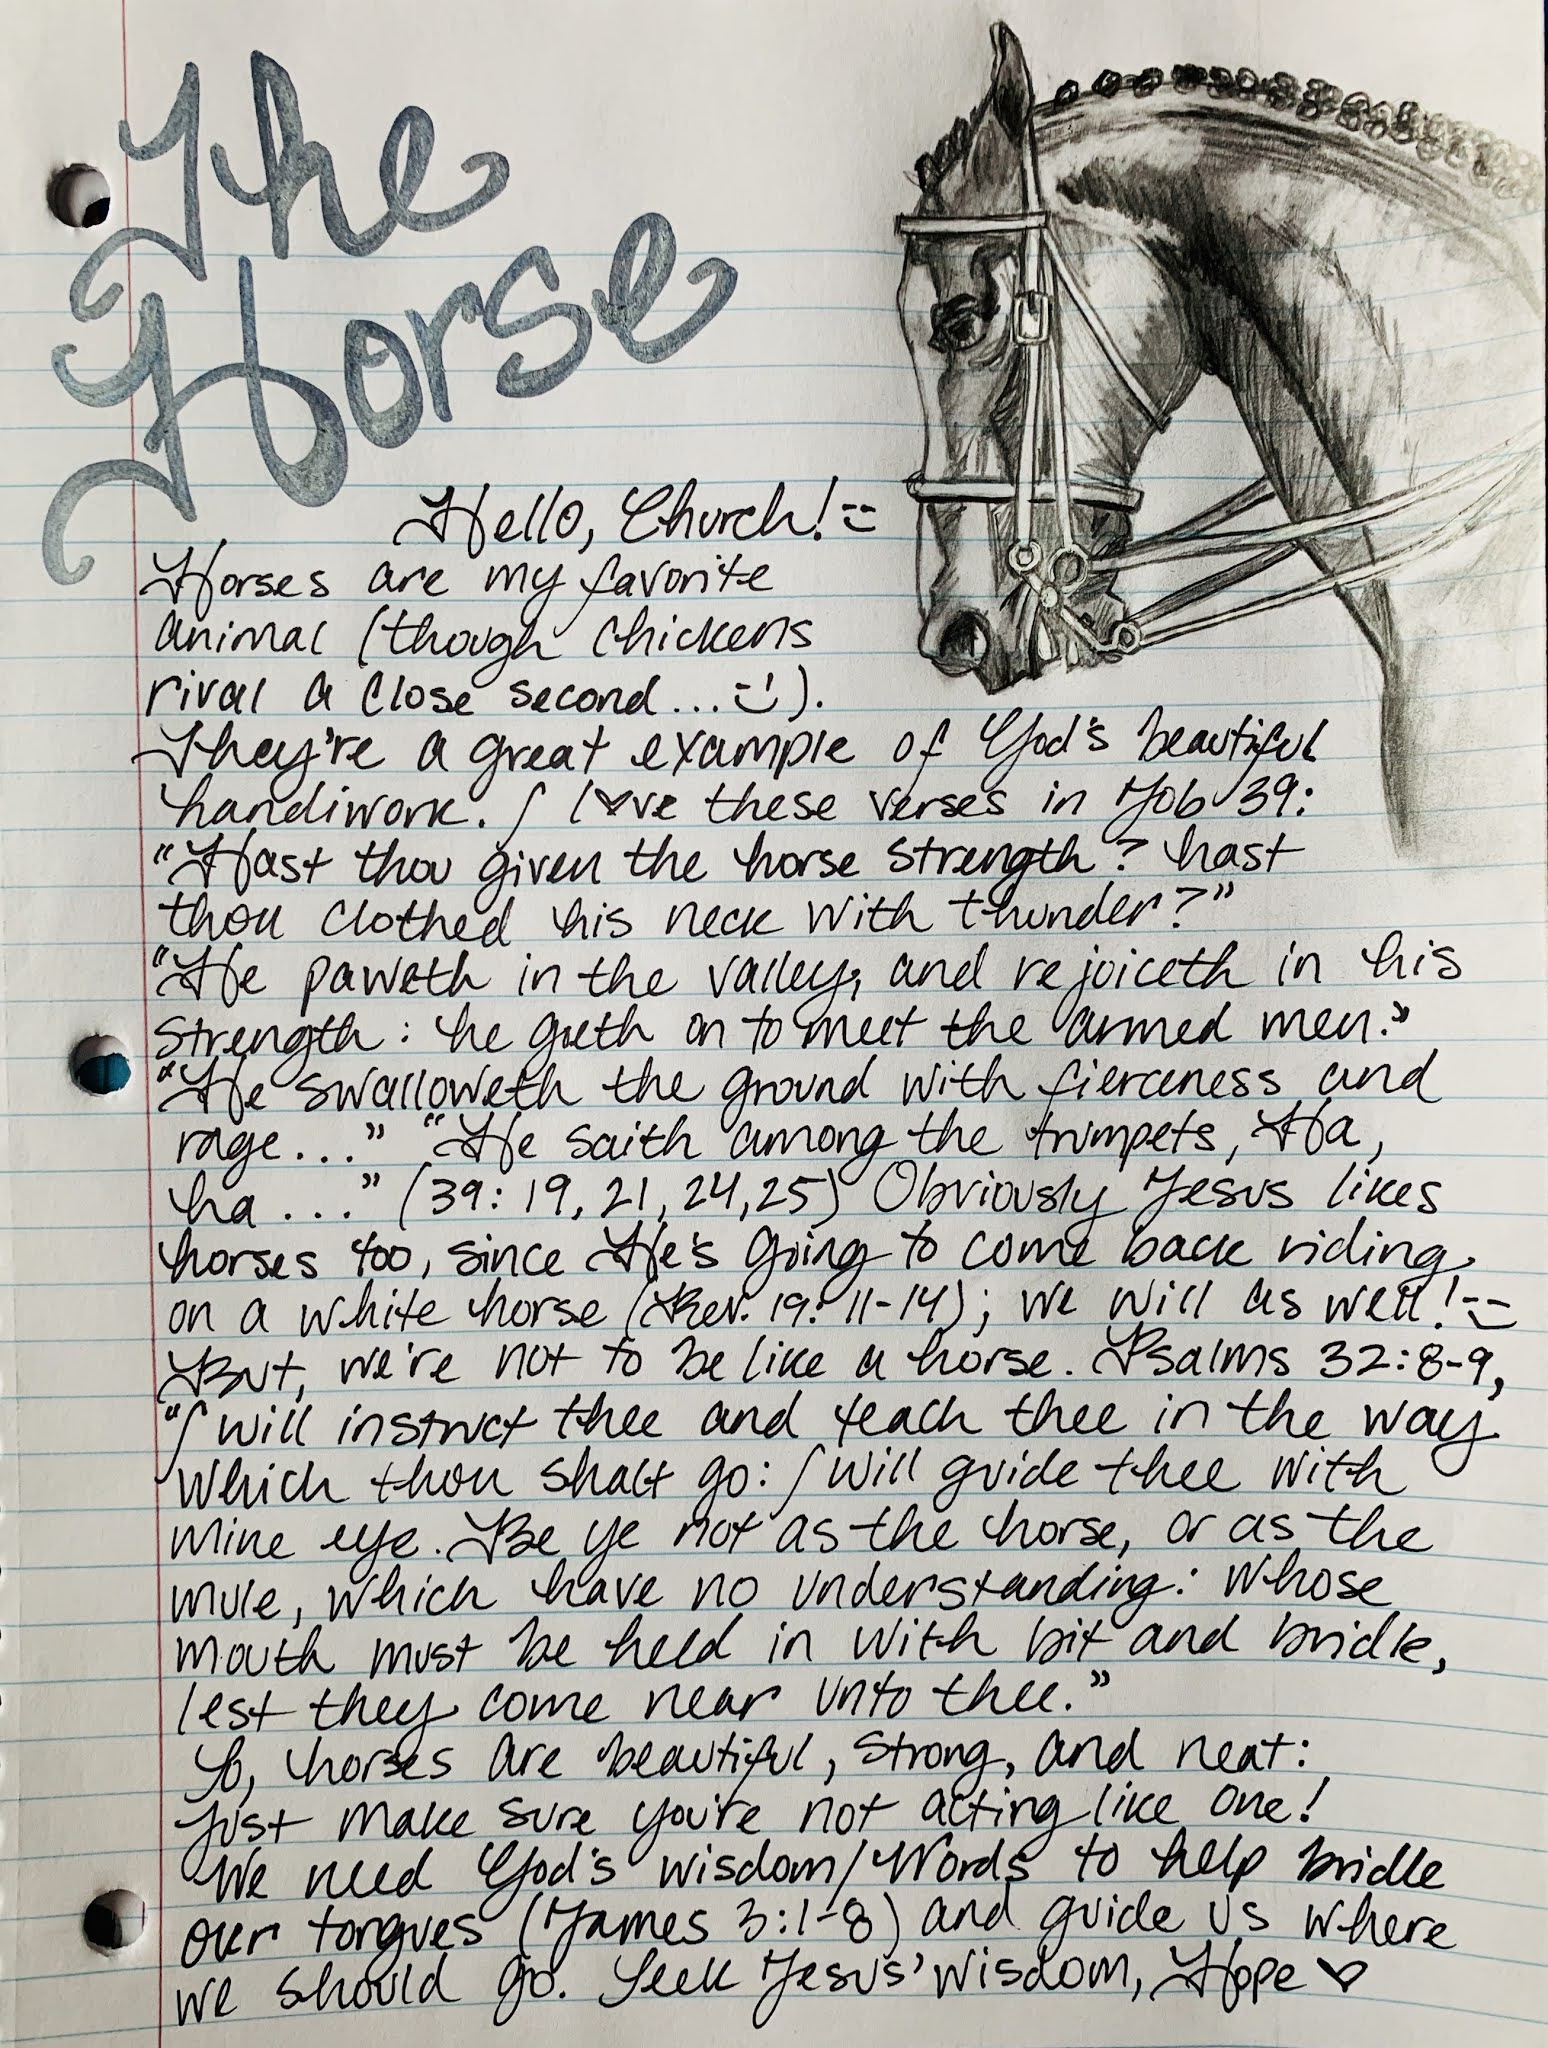 The
Horse
Hello, Church! :)
Horses are my favorite
animal (though chickens
rival a close second... :)).
They're a great example of God's beautiful
handiwork. I l♥ve these verses in Job 39:
"Hast thou given the horse strength? hast
thou clothed his neck with thunder?"
"He paweth in the valley, and rejoiceth in his
strength: he goeth on to meet the armed men."
"He swalloweth the ground with fierceness and
rage..." "He saith among the trumpets, Ha,
ha..." (39:19, 21, 24, 25) Obviously Jesus likes
horses too, since He's going to come back riding
on a white horse (Rev. 19:11-14); we will as well! :)
But, we're not to be like a horse. Psalms 32:8-9,
"I will instruct thee and teach thee in the way
which thou shalt go: I will guide thee with
mine eye. Be ye not as the horse, or as the
mule, which have no understanding: whose
mouth must be held in with bit and bridle,
lest they come near unto thee."
So, horses are beautiful, strong, and neat:
Just make sure you're not acting like one!
We need God's wisdom/Words to help bridle
our tongues (James 3:1-8) and guide us where
we should go. Seek Jesus' wisdom, Hope ♡